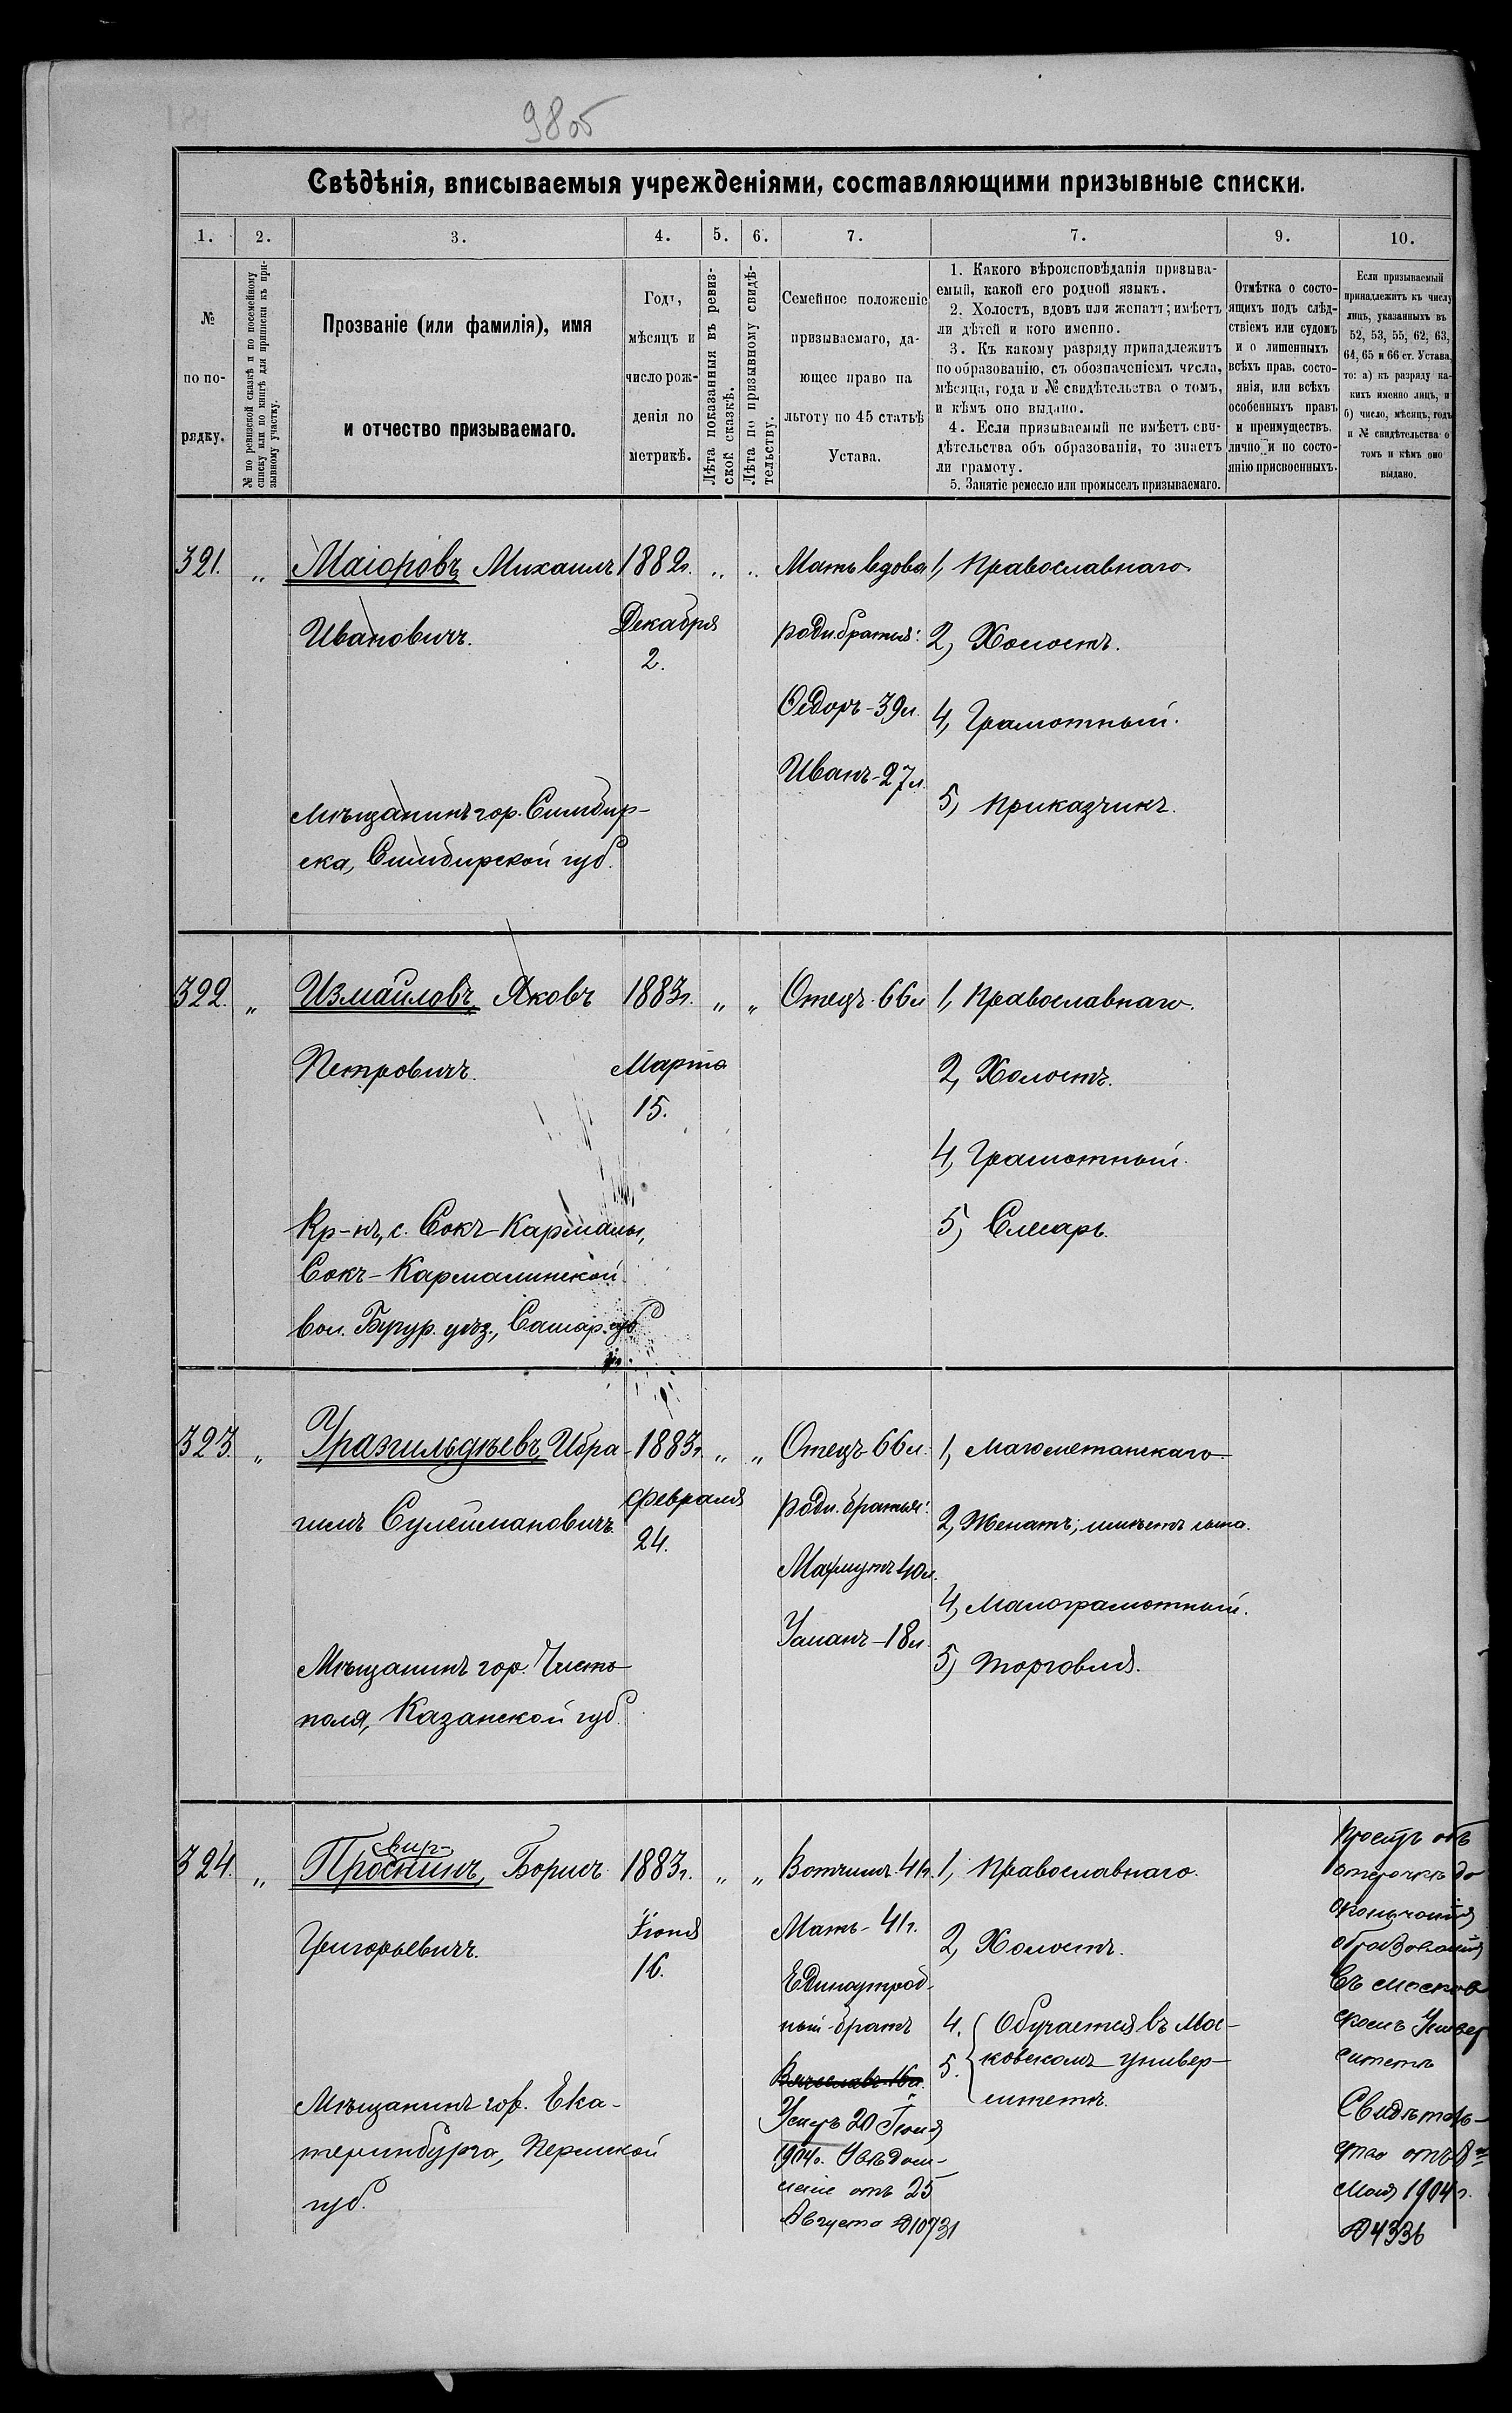 98об
Свѣдѣнія, вписываемыя учрежденіями, составляющими призывные списки.
1. 2. 3. 4. 5. 6. 7. 7. 9. 10.
№
по по-
рядку.
№ по ревизской сказкѣ и по посемейному
списку или по книгѣ для приписки къ при-
зывному участку.
Прозваніе (или фамилія), имя
и отчество призываемаго.
Годъ,
мѣсяцъ и
число рож-
денія по
метрикѣ.
Лѣта показанныя въ ревиз-
ской сказкѣ.
Лѣта по призывному свидѣ-
тельству.
Семейное положеніе
призываемаго, да-
ющее право на
льготу по 45 статьѣ
Устава.
1. Какого вѣроисповѣданія призыва-
емый, какой его родной языкъ.
2. Холостъ, вдовъ или женатъ; имѣетъ
ли дѣтей и кого именно.
3. Къ какому разряду принадлежитъ
по образованію, съ обозначеніемъ числа,
мѣсяца, года и № свидѣтельства о томъ,
и кѣмъ оно выдано.
4. Если призываемый не имѣетъ сви-
дѣтельства объ образованіи, то знаетъ
ли грамоту.
5. Занятіе ремесло или промыселъ призываемаго.
Отмѣтка о состо-
ящихъ подъ слѣд-
ствіемъ или судомъ
и о лишенныхъ
всѣхъ прав. состо-
янія, или всѣхъ
особенныхъ правъ
и преимуществъ,
лично и по состо-
янію присвоенныхъ.
Если призываемый
принадлежитъ къ числу
лицъ, указанныхъ въ
52, 53, 55, 62, 63,
64, 65 и 66 ст. Устава,
то: а) къ разряду ка-
кихъ именно лицъ, и
б) число, мѣсяцъ, годъ
и № свидѣтельства о
томъ и кѣмъ оно
выдано.
321. „ Маіоровъ Михаилъ
Ивановичъ.
Мѣщанинъ гор. Симбир-
ска, Симбирской губ.
1882г.
Декабря
2.
„ „
Мать вдова
родн. братья:
Ѳедоръ-39л.
Иванъ-27л.
1, Православнаго
2, Холостъ.
4, Грамотный.
5, Приказчикъ.
322. „ Измайловъ Яковъ
Петровичъ.
Кр-нъ, с. Сокъ-Кармалы,
Сокъ-Кармалинской
вол. Бугур. уѣз., Самар. губ
1883г.
Марта
15.
„ „
Отецъ-66л
1, Православнаго.
2, Холостъ.
4, Грамотный.
5, Слесарь.
323. „ Уразгильдѣевъ Ибра-
гимъ Сулеймановичъ.
Мѣщанинъ гор. Чисто-
поля, Казанской губ.
1883г.
Февраля
24.
„ „
Отецъ-66л.
родн. братья:
Махмутъ 40л.
Усманъ-18л.
1, Магометанскаго
2, Женатъ; имѣетъ сына.
4, Малограмотный.
5, Торговля.
324. „
свир-
Проснинъ, Борисъ
Григорьевичъ.
Мѣщанинъ гор. Ека-
теринбурга, Пермской
губ.
1883г.
Іюня
16.
„ „
Вотчимъ 41г.
Мать-41г.
Единоутроб-
ный братъ
Вячеславъ-16л.
Умеръ 20 Іюня
1904г. Увѣдом-
леніе отъ 25
Августа №10731
1, Православнаго.
2, Холостъ.
4. Обучается въ Мос-
5. ковскомъ универ-
ситетѣ.
Проситъ объ
отсрочкѣ до
окончанія
образованія
въ Москов
скомъ Универ
ситетѣ
Свидѣтель-
ство отъ 8го
Мая 1904г.
№4336